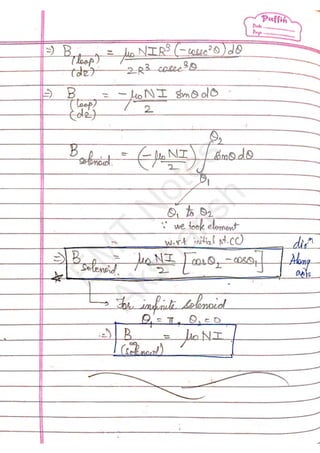 Puffin
Date
Page
=) B (loop) (dz) = μ₀NIR³(-cosec²θ)dθ / 2R³ cosec³θ
=) B (loop) (dz) = -μ₀NI/2 sinθdθ
B solenoid = (-μ₀NI/2) ∫ sinθdθ
θ₂
θ₁
θ₁ to θ₂
∵ we took element
w.r.t initial
=) B solenoid = μ₀NI/2 [cosθ₂ - cosθ₁]
dirⁿ Along axis
→ For infinite Solenoid
θ₁ = π, θ₂ = 0
=) B (solenoid) = μ₀NI